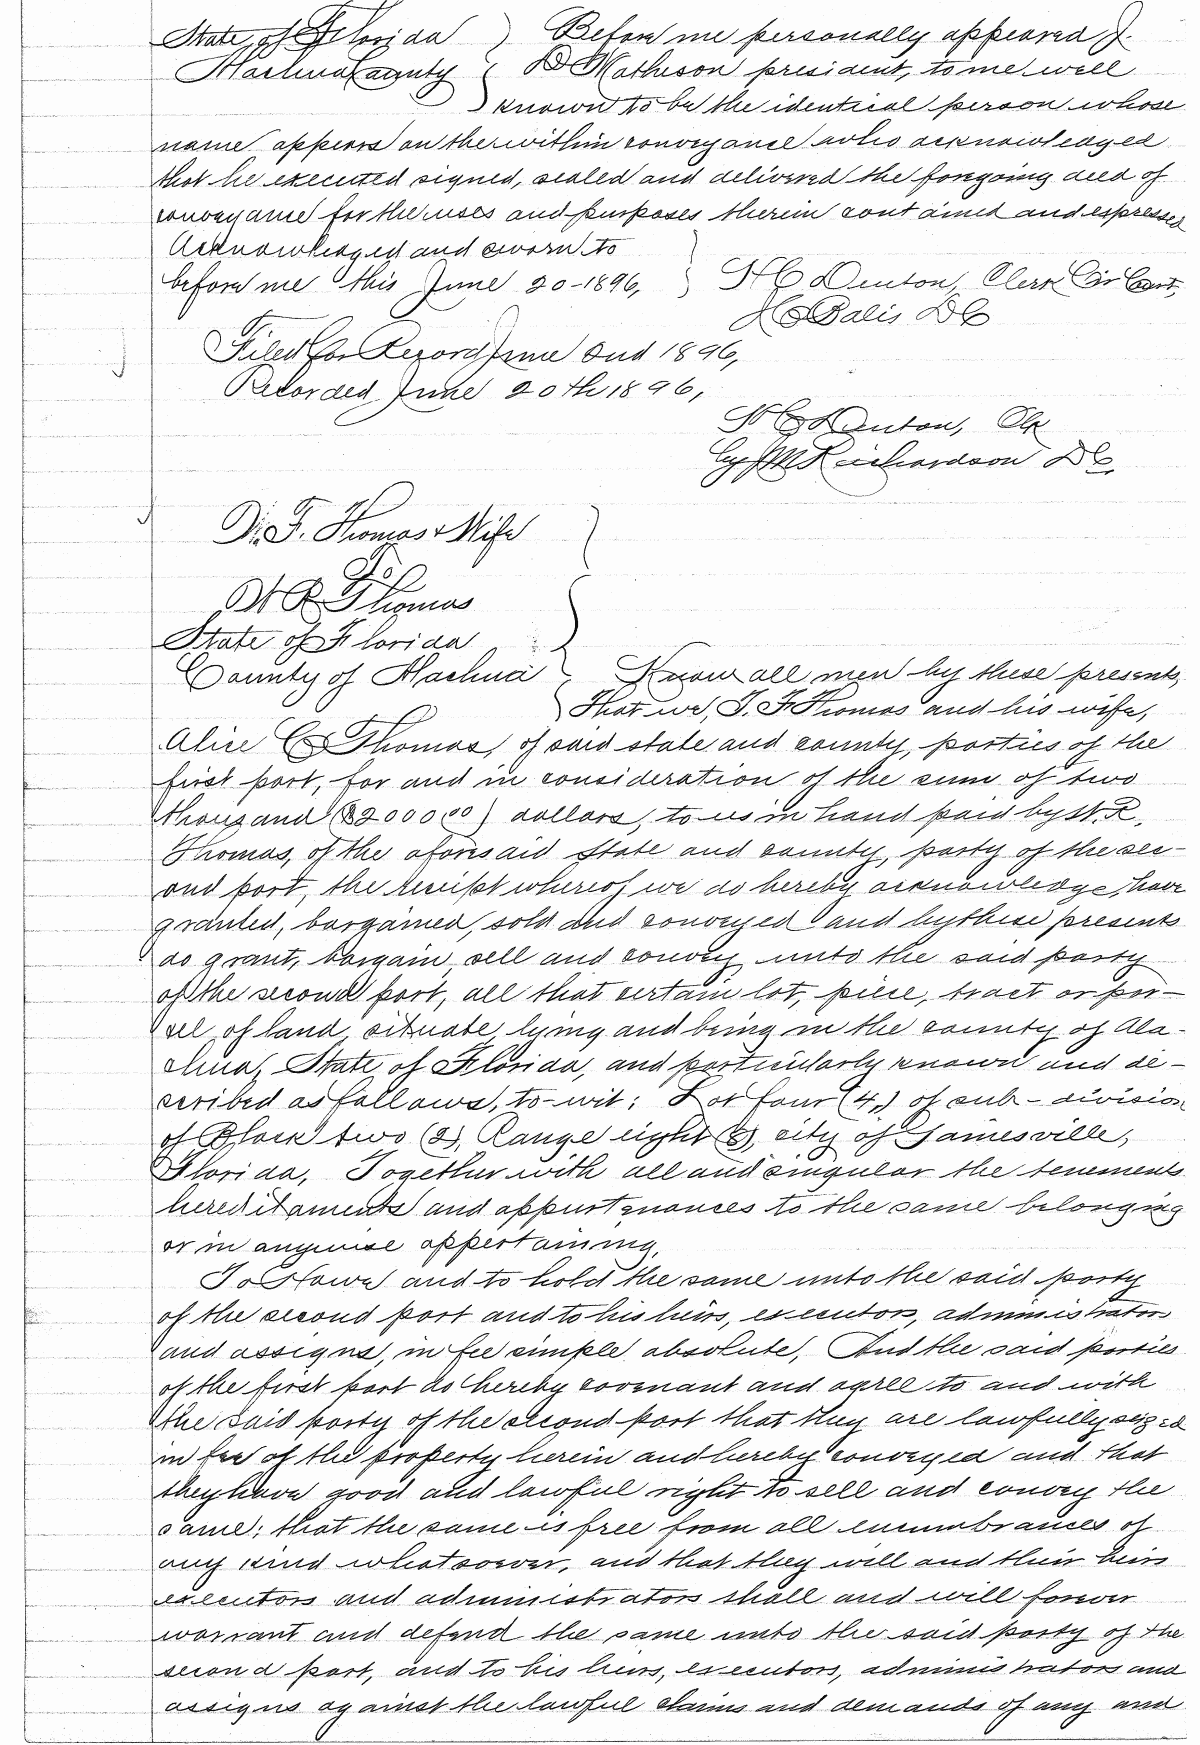 State of Florida } Before me personally appeared J.
Alachua County } D Matheson president, to me well
known to be the identical person whose
name appears on the within conveyance who acknowledged
that he executed signed, sealed and delivered the foregoing deed of
conveyance for the uses and purposes therein contained and expressed
Acknowledged and sworn to
before me this June 20-1896, } H C Denton, Clerk Cir Court,
Dalis D C
Filed for Record June 2nd 1896,
Recorded June 20th 1896,
H C Denton, Clk
by M Richardson D C,
T. F. Thomas & Wife }
To
W R Thomas
State of Florida
County of Alachua } Know all men by these presents,
That we, T. F. Thomas and his wife,
Alice C Thomas, of said state and county, parties of the
first part, for and in consideration of the sum of two
thousand ($2000 00) dollars, to us in hand paid by W. R.
Thomas, of the aforesaid state and county, party of the sec-
ond part, the receipt whereof we do hereby acknowledge, have
granted, bargained, sold and conveyed and by these presents
do grant, bargain, sell and convey unto the said party
of the second part, all that certain lot, piece, tract or par-
cel of land situate, lying and being in the county of Ala-
chua, State of Florida, and particularly known and de-
scribed as follows, to-wit: Lot four (4,) of sub-division
of Block two (2), Range eight (8), city of Gainesville,
Florida, Together with all and singular the tenements
hereditaments and appurtenances to the same belonging
or in anywise appertaining,
To Have and to hold the same unto the said party
of the second part and to his heirs, executors, administrators
and assigns, in fee simple absolute, And the said parties
of the first part do hereby covenant and agree to and with
the said party of the second part that they are lawfully seized
in fee of the property herein and hereby conveyed and that
they have good and lawful right to sell and convey the
same; that the same is free from all encumbrances of
any kind whatsoever, and that they will and their heirs
executors and administrators shall and will forever
warrant and defend the same unto the said party of the
second part, and to his heirs, executors, administrators and
assigns against the lawful claims and demands of any and